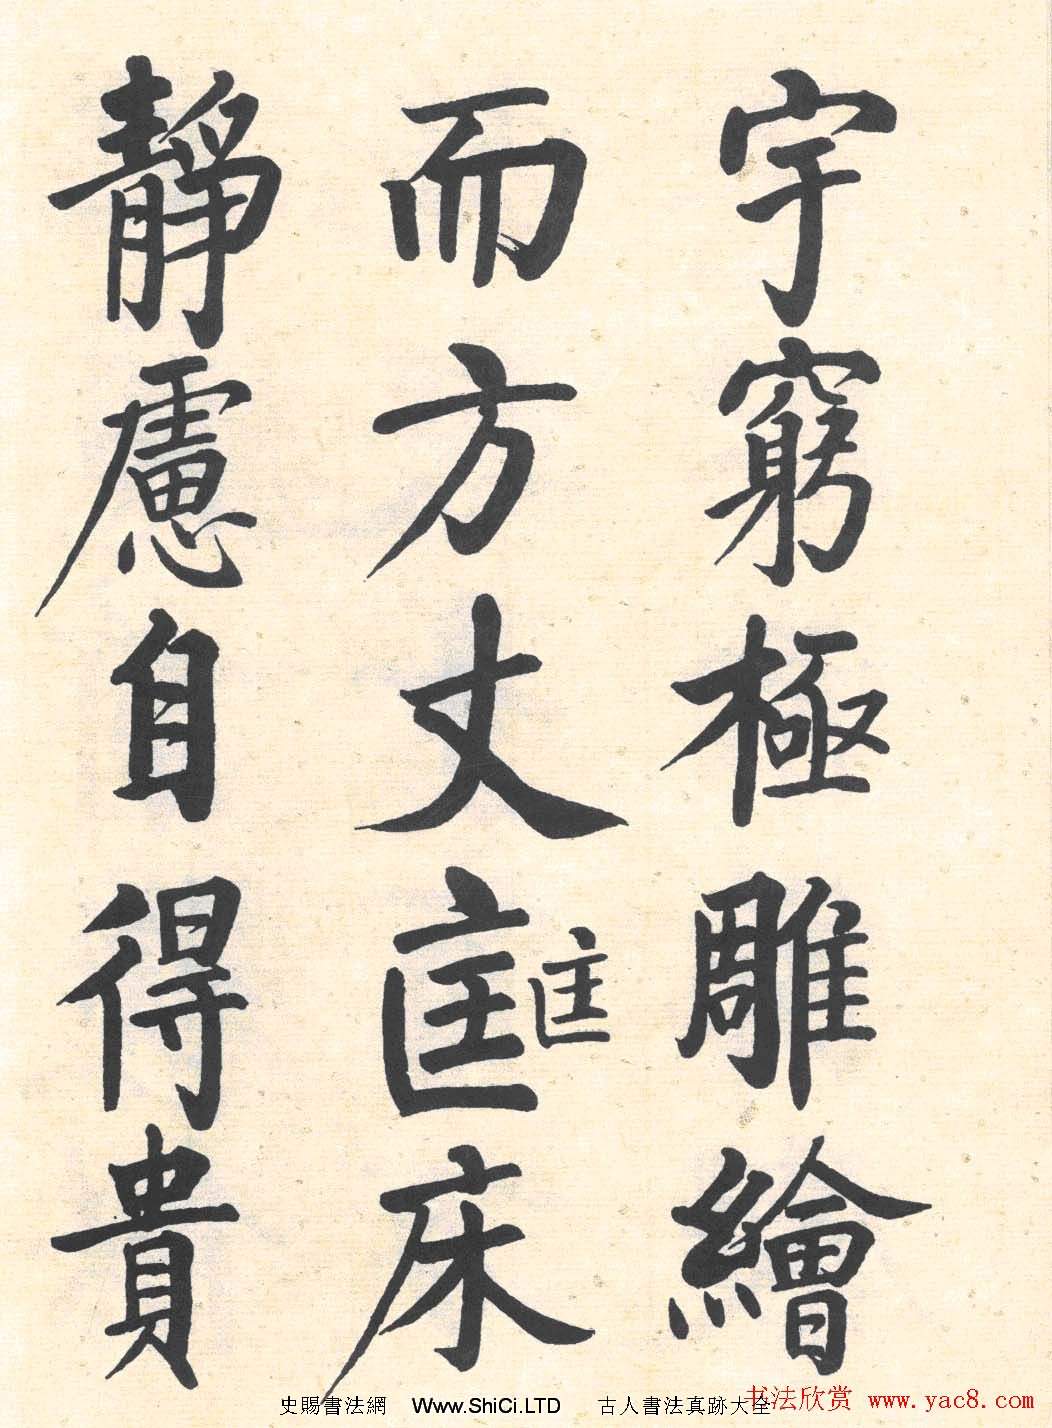 宇窮極雕繪
而方丈匡床
匡
靜慮自得貴
史賜書法網 Www.ShiCi.LTD 古人書法真跡大全
书法欣赏 www.yac8.com